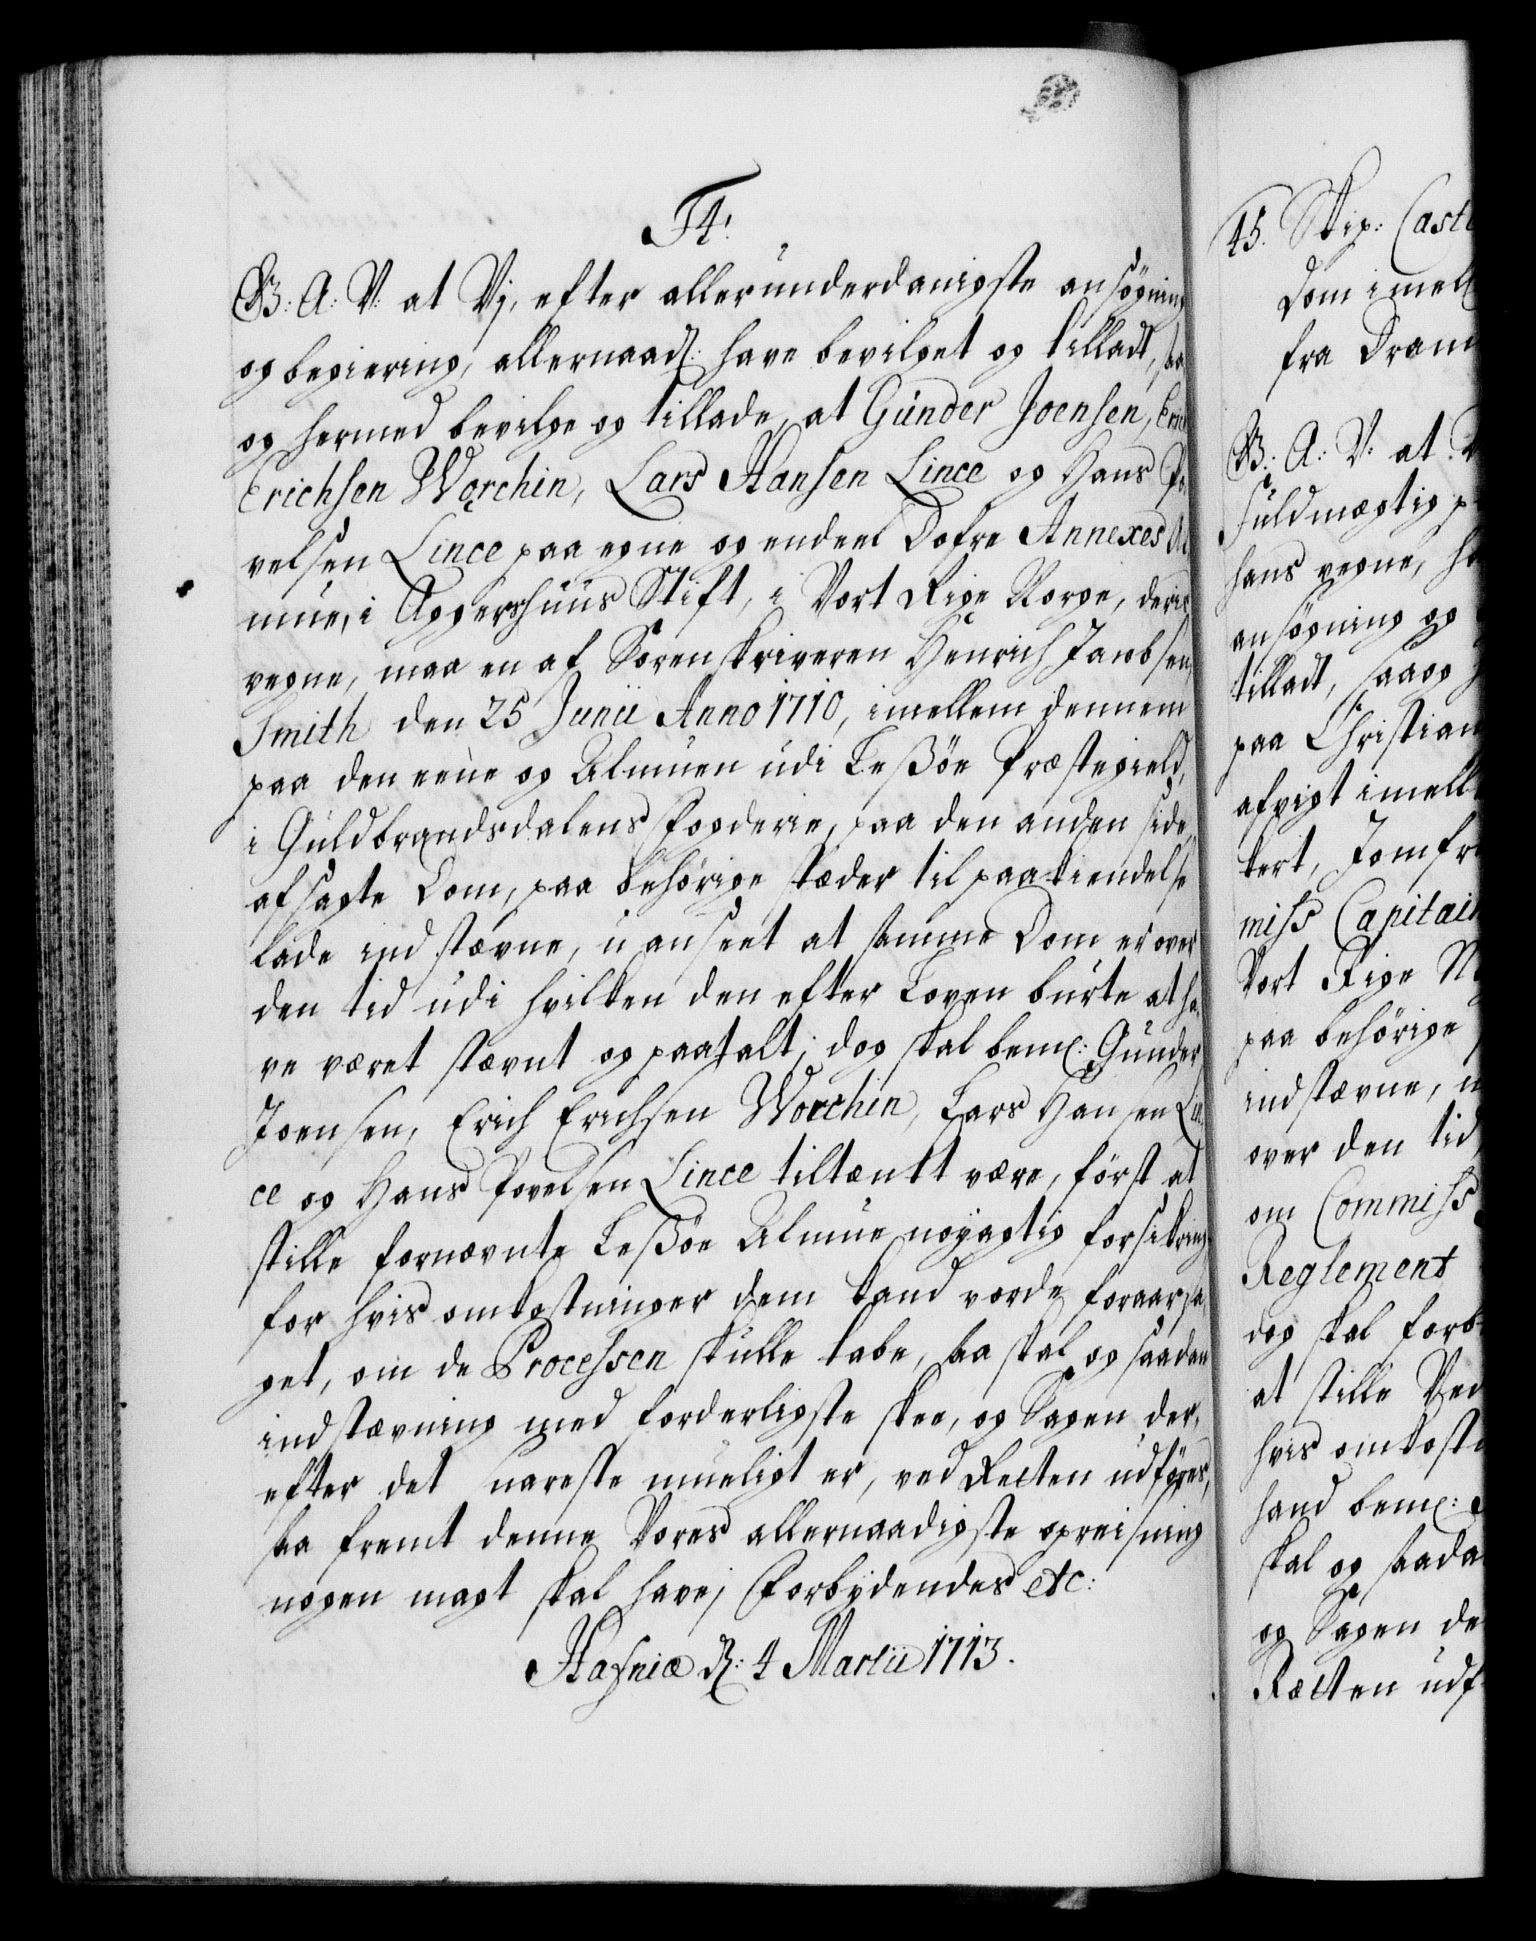 F4.
G: A: V: at Vj, efter allerunderdanigste ansøgning
og begiering, allernaadl: have bevilget og tilladt, saa
og hermed bevilge og tillade, at Gunder Joensen,
Erichsen Worchin, Lars Hansen Lince og Hans Po
velsen Lince paa egne og endeel Dofre Annexes Al
mue, i Aggershuus Stift, i Vort Rige Norge, deris
vegne, maa en af Sorenskriveren Henrich Jacobsen
Smith den 25 Junii Anno 1710, imellem dennem
paa den eene og Almuen udi Leßøe Præstegield,
i Guldbrandsdalens Fogderie, paa den anden side,
afsagte Dom, paa behørige stæder til paakiendelse
lade indstævne, uanseet at samme Dom er over
den tid udi hvilken den efter Loven burte at ha
ve været stævnt og paatalt; dog skal beml: Gunder
Joensen, Erich Erichsen Worchin, Lars Hansen Lin
ce og Hans Povelsen Lince tiltænkt være, først at
stille fornævnte Leßøe Almue nøyagtig forsikring
for hvis omkostninger dem kand vorde foraarsa
get, om de Processen skulle tabe, saa skal og saadan
indstævning med forderligste skee, og Sagen der,
efter det snareste mueligt er, ved Retten udføres,
saa fremt denne Vores allernaadigste opreisning
nogen magt skal have; Forbydendes etc:
Hafniæ d: 4 Martii 1713.
45. Skip: Cast
Dom imell
fra Dram
G: A: V: at V
Fuldmægtig p
hans vegne, h
ansøgning og
tilladt, saa og h
paa Christian
afsigt imell
tert, Jomfr
miss Capitain
Vort Rige N
paa behørige
indstævne, u
over den tid
om Commiss
Reglement
dog skal forb
at stille Ved
hvis omkostn
hand beml:
skal og saada
og Sagen de
Rætten udf